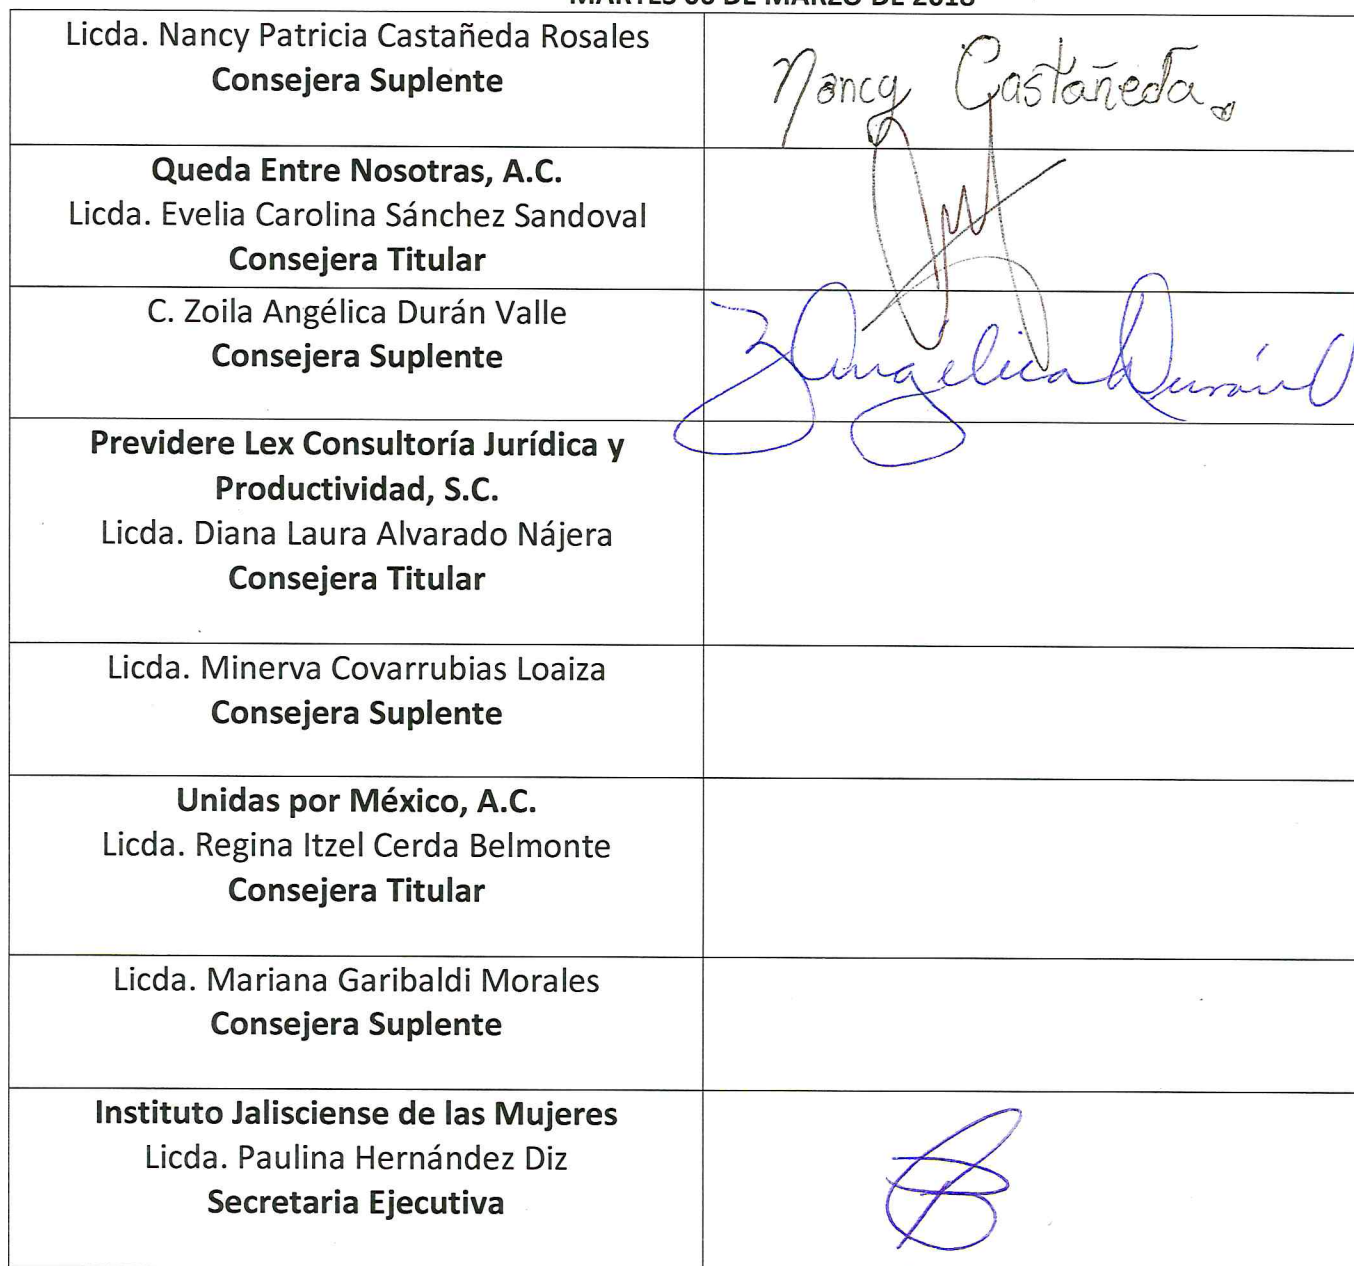 MARTES 06 DE MARZO DE 2018
Licda. Nancy Patricia Castañeda Rosales
Consejera Suplente
Nancy Castañeda
Queda Entre Nosotras, A.C.
Licda. Evelia Carolina Sánchez Sandoval
Consejera Titular
C. Zoila Angélica Durán Valle
Consejera Suplente
Z Angélica Durán V
Previdere Lex Consultoría Jurídica y
Productividad, S.C.
Licda. Diana Laura Alvarado Nájera
Consejera Titular
Licda. Minerva Covarrubias Loaiza
Consejera Suplente
Unidas por México, A.C.
Licda. Regina Itzel Cerda Belmonte
Consejera Titular
Licda. Mariana Garibaldi Morales
Consejera Suplente
Instituto Jalisciense de las Mujeres
Licda. Paulina Hernández Diz
Secretaria Ejecutiva